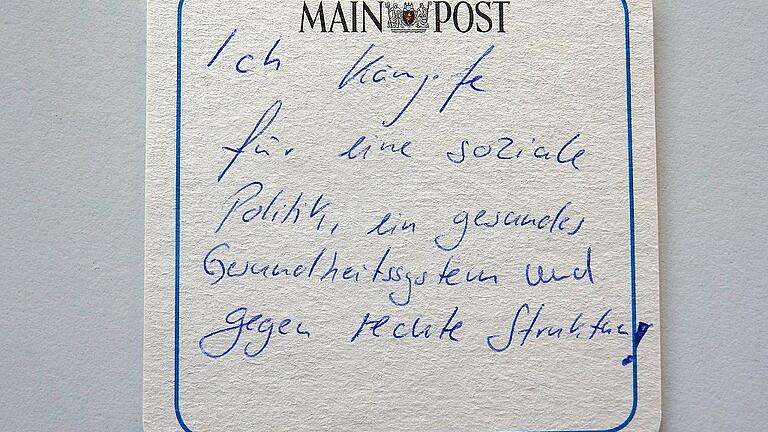 MAIN POST
Ich kämpfe
für eine soziale
Politik, ein gesundes
Gesundheitssystem und
gegen rechte Strukturen!